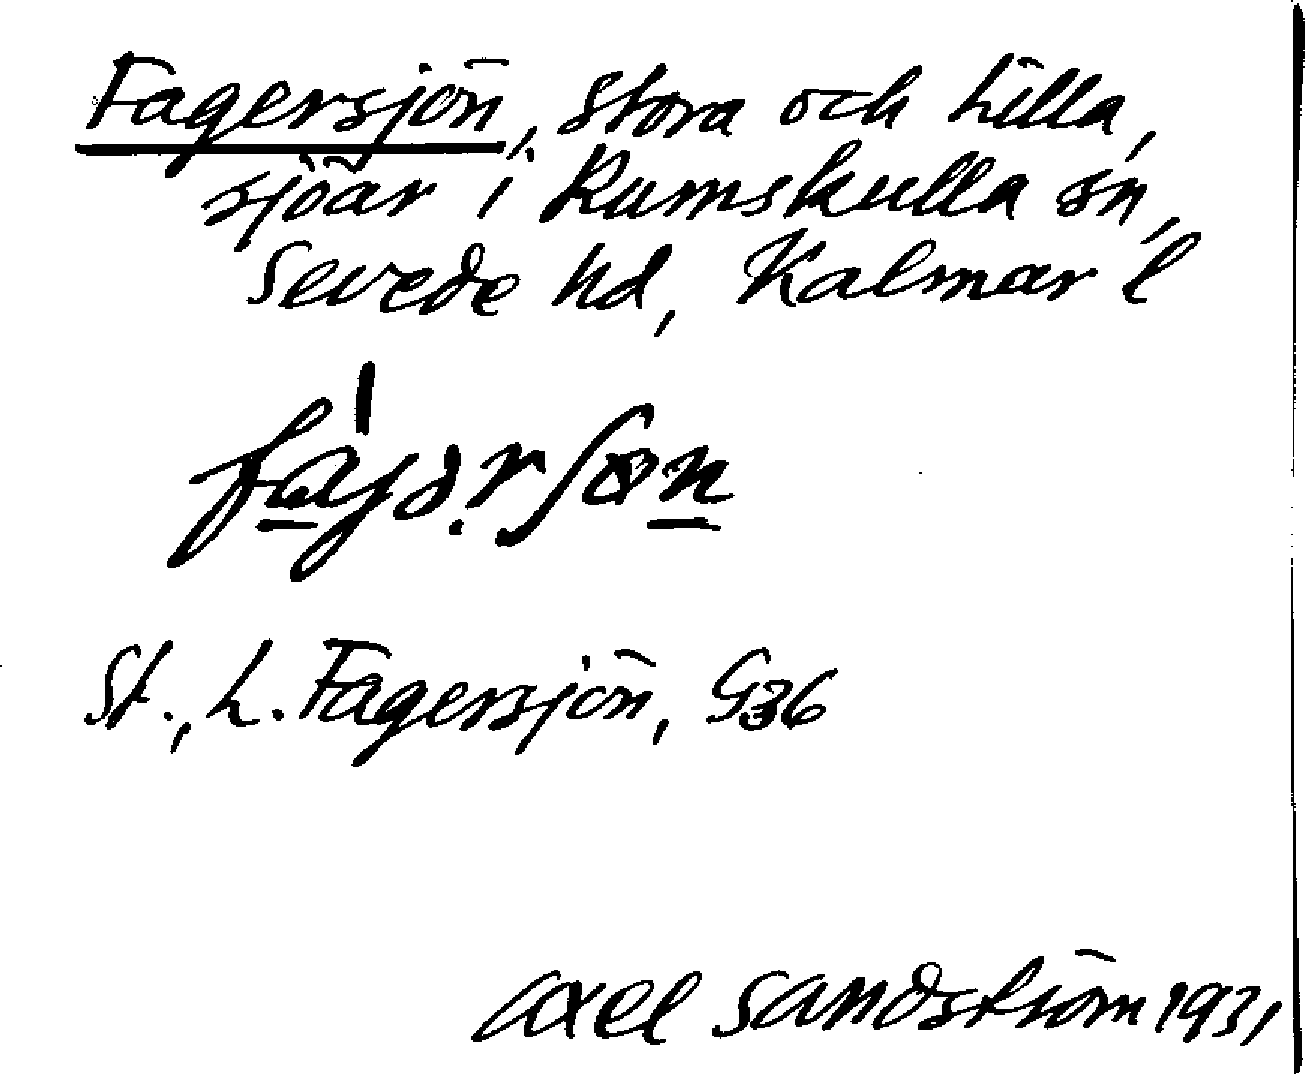 Fagersjön, Stora och Lilla,
sjöar i Rumskulla sn,
Sevede hd, Kalmar l
St., L. Fagersjön, G36
Axel Sandström 1931